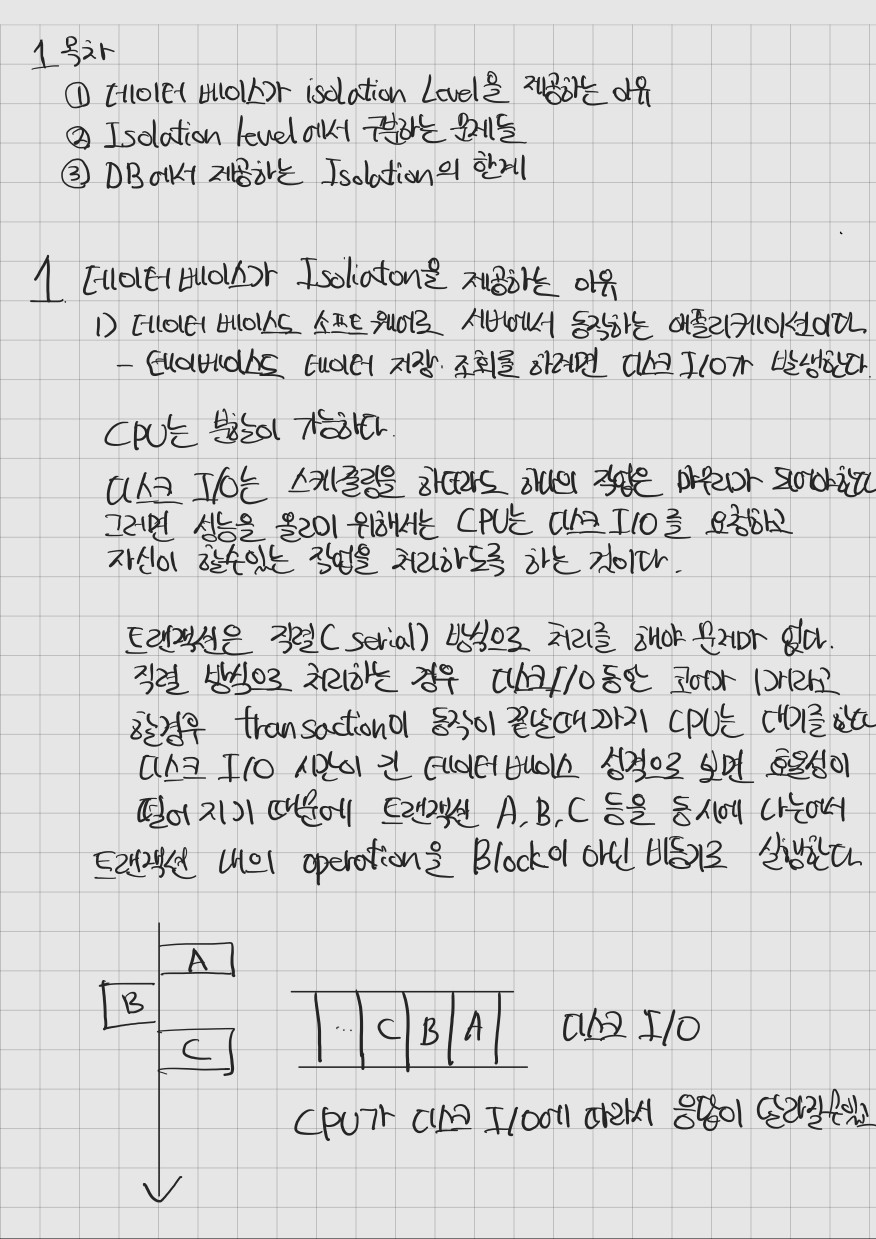 1 목차
① 데이터 베이스가 isolation Level을 제공하는 이유
② Isolation level에서 구분하는 문제들
③ DB에서 제공하는 Isolation의 한계
1 데이터 베이스가 Isoliaton을 제공하는 이유
1) 데이터 베이스도 소프트웨어로 서버에서 동작하는 애플리케이션이다.
- 데이베이스도 데이터 저장·조회를 하려면 디스크 I/O가 발생한다.
CPU는 분할이 가능하다.
디스크 I/O는 스케쥴링을 하더라도 하나의 작업은 마무리가 되어야한다
그러면 성능을 올리기 위해서는 CPU는 디스크 I/O를 요청하고
자신이 할수있는 작업을 처리하도록 하는 것이다.
트랜잭션은 직렬(serial) 방식으로 처리를 해야 문제가 없다.
직렬 방식으로 처리하는 경우 디스크 I/O 동안 코어가 1개라고
할경우 transaction이 동작이 끝날때까지 CPU는 대기를 한다
디스크 I/O 시간이 긴 데이터 베이스 성격으로 보면 효율성이
떨어 지기 때문에 트랜잭션 A, B, C 등을 동시에 나누어서
트랜잭션 내의 operation을 Block이 아닌 비동기로 실행한다.
A
B
C
... C B A 디스크 I/O
CPU가 디스크 I/O에 따라서 응답이 달라질수있고